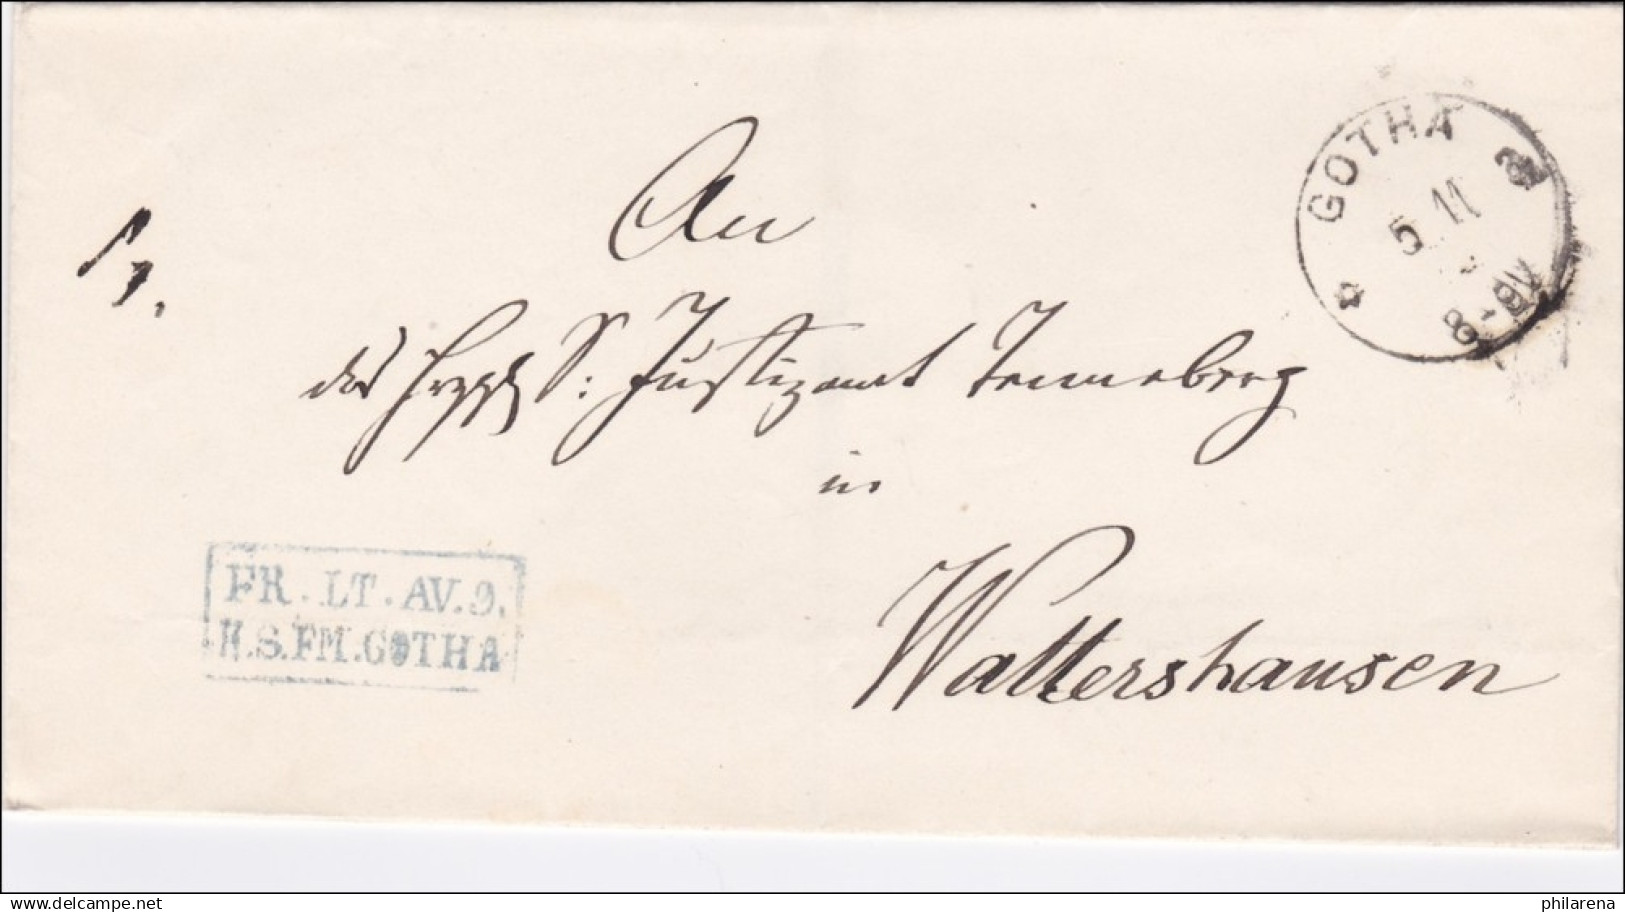 GOTHA
5 11
8-9N
An
das Herzogl. S. Justizamt Tenneberg
in
Waltershausen
FR. LT. AV. 9.
H.S.FM.GOTHA
delcampe.net
philarena